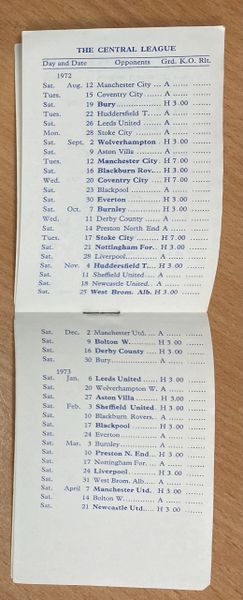 THE CENTRAL LEAGUE
Day and Date Opponents Grd. K.O. Rlt.
1972
Sat. Aug. 12 Manchester City ... A ...... .......
Tues. 15 Coventry City ..... A ...... .......
Sat. 19 Bury ................ H 3.00 .......
Tues. 22 Huddersfield T..... A ...... .......
Sat. 26 Leeds United ...... A ...... .......
Mon. 28 Stoke City ......... A ...... .......
Sat. Sept. 2 Wolverhampton . H 3.00 .......
Sat. 9 Aston Villa ......... A ...... .......
Tues. 12 Manchester City . H 7.00 .......
Sat. 16 Blackburn Rov... H 3.00 .......
Wed. 20 Coventry City ... H 7.00 .......
Sat. 23 Blackpool .......... A ...... .......
Sat. 30 Everton ............ H 3.00 .......
Sat. Oct. 7 Burnley ............ H 3.00 .......
Wed. 11 Derby County .... A ...... .......
Sat. 14 Preston North End A ...... .......
Tues. 17 Stoke City ........ H 7.00 .......
Sat. 21 Nottingham For. H 3.00 .......
Sat. 28 Liverpool............ A ...... .......
Sat. Nov. 4 Huddersfield T.... H 3.00 .......
Sat. 11 Sheffield United ... A ...... .......
Sat. 18 Newcastle United . A ...... .......
Sat. 25 West Brom. Alb. H 3.00 .......
Sat. Dec. 2 Manchester Utd. ... A ...... .......
Sat. 9 Bolton W........... H 3.00 .......
Sat. 16 Derby County .... H 3.00 .......
Sat. 30 Bury ................. A ...... .......
1973
Sat. Jan. 6 Leeds United ..... H 3.00 .......
Sat. 20 Wolverhampton W. A ...... .......
Sat. 27 Aston Villa ........ H 3.00 .......
Sat. Feb. 3 Sheffield United. H 3.00 .......
Sat. 10 Blackburn Rovers. A ...... .......
Sat. 17 Blackpool .......... H 3.00 .......
Sat. 24 Everton ............. A ...... .......
Sat. Mar. 3 Burnley............. A ...... .......
Sat. 10 Preston N. End... H 3.00 .......
Sat. 17 Nottingham For. ... A ...... .......
Sat. 24 Liverpool........... H 3.00 .......
Sat. 31 West Brom. Alb.... A ...... .......
Sat. April 7 Manchester Utd. H 3.00 .......
Sat. 14 Bolton W............ A ...... .......
Sat. 21 Newcastle Utd..... H 3.00 .......